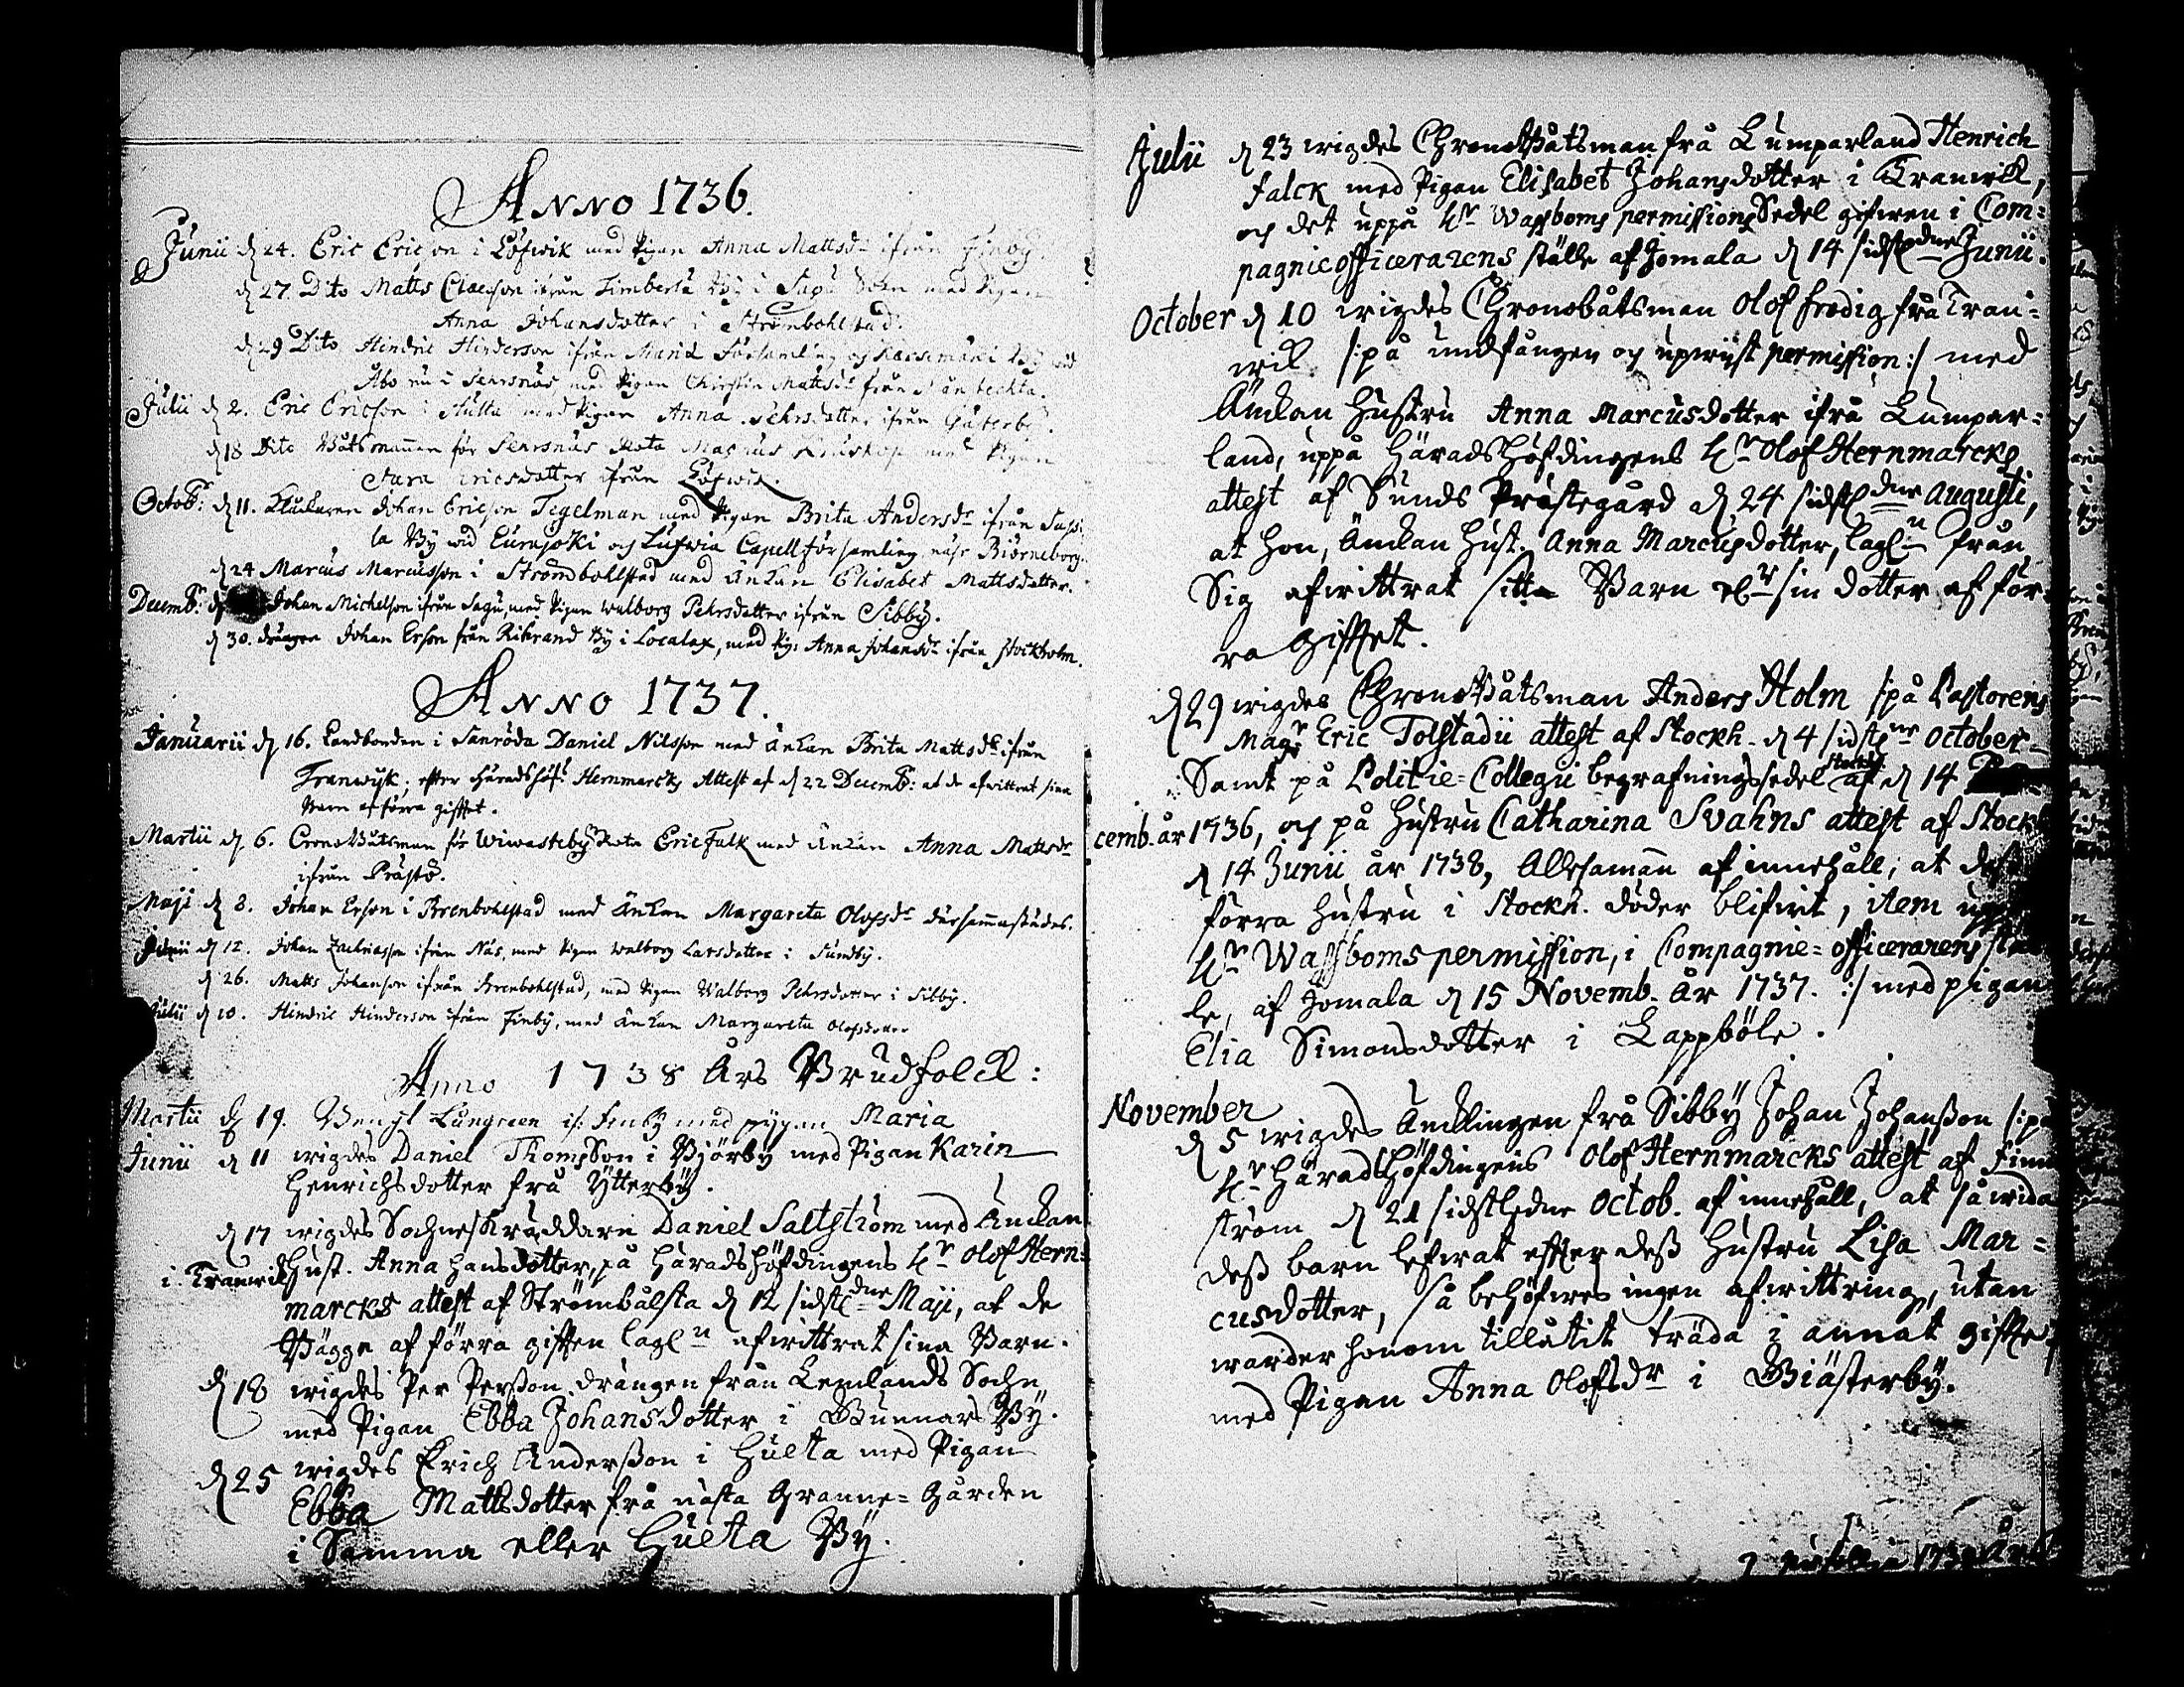 Anno 1736.
Junii d. 24. Eric Ericson i Löfwik med Pigan Anna Mattsdr ifrån Finby.
d 27. Dito Matts Claesson ifrån Timberla By i Sagu Sokn med Pigan
Anna Johansdotter i Strömbohlstad.
d 29 Dito, Hindric Hinderson ifrån Mariæ Församling og By wid
Åbo nu i Sehrsnäs med Pigan Christin Mattsdr från
Julii d 2. Eric Ericson i Hulta med Pigan Anna Pehrsdatter ifrån Gästerby.
d 18 Dito Båtsmannen för Sehrsnäs Rota Magnus med Pigan
Sara Ericsdotter ifrån Löfwik.
Octobr: d 11. Kluckaren Johan Ericson Tegelman med Pigan Brita Andersdr ifrån Sass:
la By wid Eurajoki och Lufwia Capellförsamling näsr Biörneborg.
d 24 Marcus Marcusson i Strömbohlstad med Änkan Elisabet Mattsdatter.
Decembr: d Johan Michelson ifrån Sagu, med Pigan Walborg Pehrsdatter ifrån Sibby.
d 30. drängen Johan Erson från Rihrand By i Localax, med Pig: Anna Johansdr ifrån Stockholm.
Anno 1737.
Januarii d 16. Landbonden i Sanröda Daniel Nilsson med Änkan Brita Mattsdr ifrån
Tranwyk; efter Häradshöf: Hernmarcks Attest af d 22 Decembr: at de afwittrat sina
Barn af förra giftet.
Martii d 6. Crono Båtsman för Wiwasteby Rota Eric Falk med Änkan Anna Mattsdr
ifrån Prästö.
Maji d 8. Johan Erson i Brenbohlstad med Änkan Margareta Olofsdr dersammastädes.
Junii d 12. Johan Zachrisson ifrån Näs, med Pigan Walborg Larsdotter i Sundby.
d 26. Matts Johanson ifrån Brenbohlstad, med Pigan Walborg Pehrsdotter i Sibby.
Julii d 10. Hindric Hinderson ifrån Finby, med Änkan Margareta Olofsdotter
Anno 1738 Års Brudfolck:
Martii d 19. Bengt Lungreen if: Finby med pygan Maria
Junii d 11 wigdes Daniel Thomsson i Bjärby med Pigan Karin
Henrichsdotter frå Ytterby.
d 17 wigdes Sochneskräddaren Daniel Saltström med Änckan
i Tranwik Hust. Anna Hansdotter, på Häradshöfdingens Hr Olof Hern=
marcks attest af Strömbålsta d 12 sidstl dne Maji, at de
Bägge af förra giften lagln afwittrat sina Barn.
d 18 wigdes Per Perßon drängen från Lemlands Sochn
med Pigan Ebba Johansdotter i Gunnars By.
d 25 wigdes Erich Anderßon i Hulta med Pigan
Ebba Mattsdotter frå nästa Granne=Gården
i Samma eller Hulta By.
Julii d 23 wigdes Chronobåtsman frå Lumparland Henrich
Falck med Pigan Elisabet Johansdotter i Tranwik,
och det uppå Hr Wassboms permissions Sedel gifwen i Com=
pagnieofficerarens ställe af Jomala d 14 sidstl dne Junii.
October d 10 wigdes Chronobåtsman Olof Frodig frå Tran=
wik /:på undfången och upwist permission:/ med
Änckan Hustru Anna Marcusdotter ifrå Lumpar=
land, uppå Häradshöfdingens Hr Olof Hernmarcks
attest af Sunds Prästegård d 24 sidstl dne Augusti,
at hon, Änckan Hust. Anna Marcusdotter, lagln från
Sig afwittrat sitt Barn elr sin dotter af för=
ra Giftet.
d 29 wigdes Chronobåtsman Anders Holm /:på Pastorens
Magr Eric Tolstadii attest af Stockh. d 4 sidstl ne October
Samt på Politie=Collegii begrafningssedel af Stockh. d 14
cemb. år 1736, och på Hustru Catharina Svahns attest af Stockh
d 14 Junii år 1738, Allesamman af innehåll, at deß
förra Hustru i Stockh. döder blifwit, item uppå
Hr Wassboms permission, i Compagnie=officerarens stäl
le, af Jomala d 15 Novemb. År 1737. :/ med pigan
Elia Simonsdotter i Lappböle.
November
d 5 wigdes Äncklingen frå Sibby Johan Johanßon /:på
Hr Häradshöfdingens Olof Hernmarcks attest af Finn
ström d 21 sidstledne Octob. af innehåll, at så wida
deß barn lefwat efter deß Hustru Lisa Mar=
cusdotter, så behöfwes ingen afwittring, utan
warder honom tillåtit träda i annat gifte:/
med Pigan Anna Olofsdr i Giästerby.